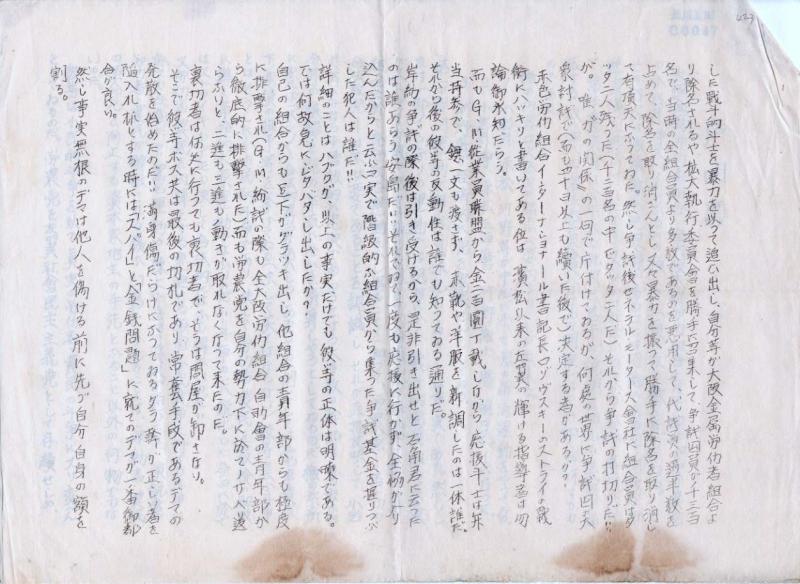 した戦斗的斗士を暴力を以つて追ひ出し、自分等が大阪金属労仂者組合よ
り除名されるや拡大執行委員会を勝手に召集して、争議団員が十三百
名で、当時の全組合員より多数であるのを悪用して、代議員の過半数を
占めて、除名を取り消さんとし又々暴力を振つて勝手に除名を取り消し
て有頂天になつておた。然し争議後ゼネラルモータース大会社に組合員はタ
ッタ二人残つた(十三百名の中でタッタ二人だ)それから争議の打切りだ!!
が。唯「力の関係」の一句で片付けておるが、何処の世界に争議団大
衆討議で(而も四十日以上も続いた後で)決定する者があるか?
赤色労仂組合インターナショナール書記長ロゾヴスキーのストライキ戦
術にハッキリと書いてある位は 濱松以来の左翼の輝ける指導者は勿
論御承知だらう。
而もG、M従業員聯盟から金二百圓丁戴しながら応援斗士は弁
当持参で、鐚一文も渡さず、赤靴や洋服を新調したのは一体誰だ。
それから後の彼等の反動性は誰でも知つておる通りだ。
岸納の争議の際後は引き受けるから、是非引き出せと石南君に云つた
のは誰あらう安島だ!!それでおて一度も応援に行かず、金
込んだからと云ふ口実で階級的な組合員から集つた争議基金を握りつぶ
した犯人は誰だ!!
詳細のことはハブクが、以上の事実だけでも彼等の正体は明瞭である。
では何故急にドタバタし出したか?
自己の組合からも足下がグラツキ出し、他組合の青年部からも極度
に排撃され(G、M紛議の際も全大阪労仂組合自助会の青年部か
ら徹底的に排撃された)而も労農党を自分の勢力下に於て
らふりと、二進も三進も動きが取れなくなつて来たのだ。
裏切者は何処に行つても裏切者で、そうは問屋が卸さない。
そこで彼等ボス共は最後の切札であり常套手段であるデマの
発散を始めたのだ!!満身傷だらけになつておるダラ幹が正しい者を
陥入れ様とする時には「スパイ」と「金銭問題」に就てのデマが一番御都
合が良い。
然し事実無根のデマは他人を傷ける前に先づ自分自身の額を
割る。